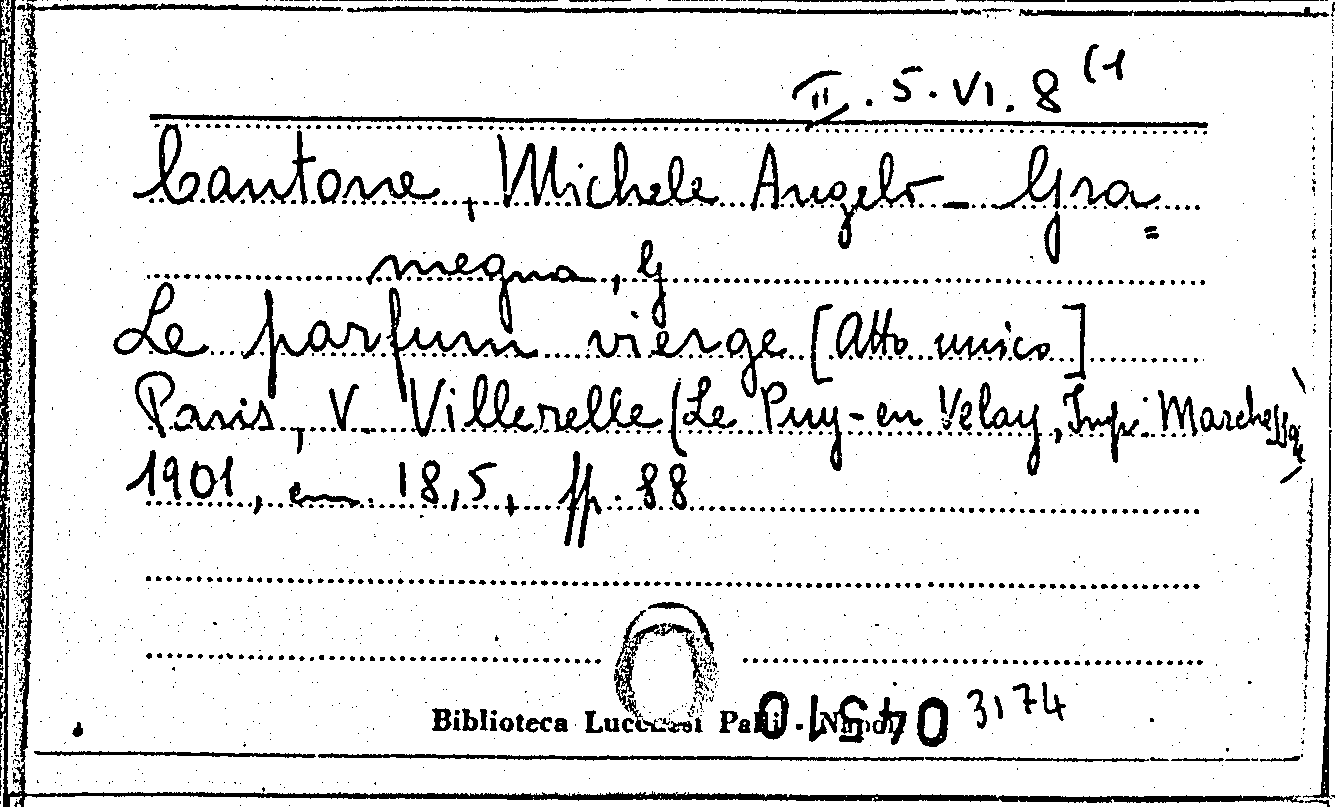 II. 5. VI. 8 (1
Cantone, Michele Angelo - Gra=
megna, G
Le parfum vierge [Atto unico]
Paris, V. Villerelle (Le Puy-en Velay, Impr.
1901, cm. 18,5, pp. 88
Biblioteca Lucchesi Palli - Napoli
04510 3174